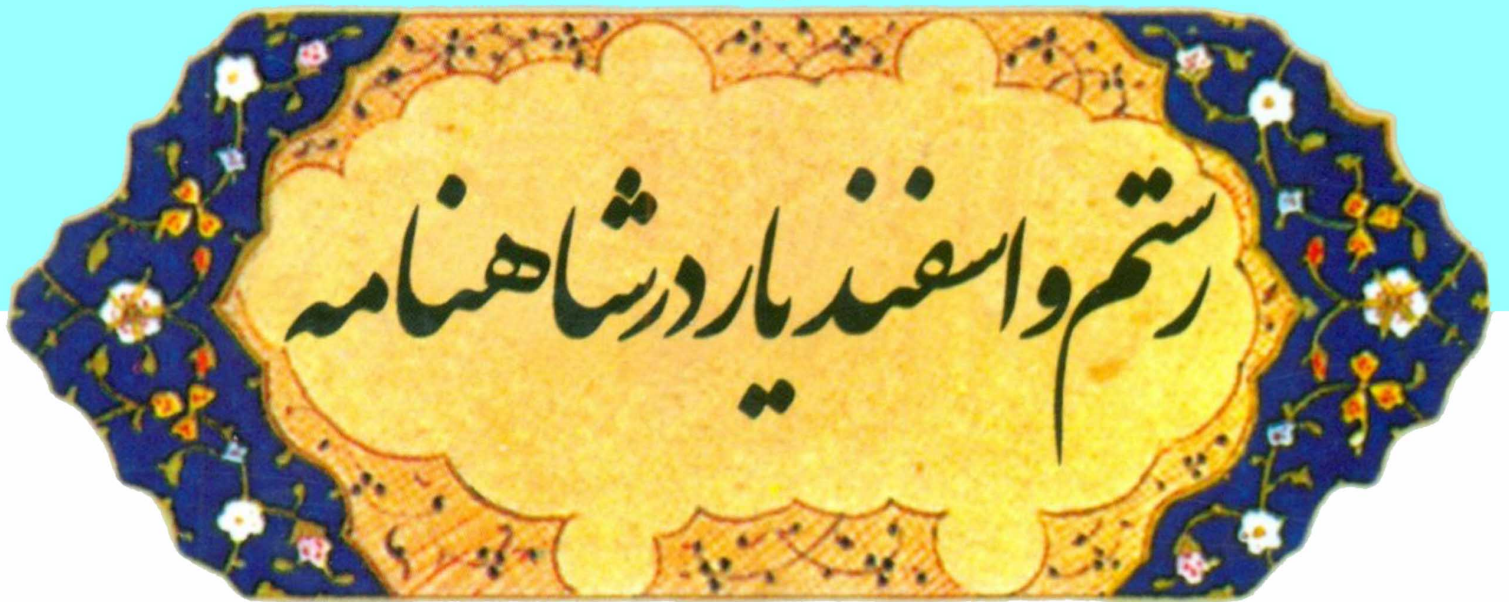 رستم و اسفندیار در شاهنامه